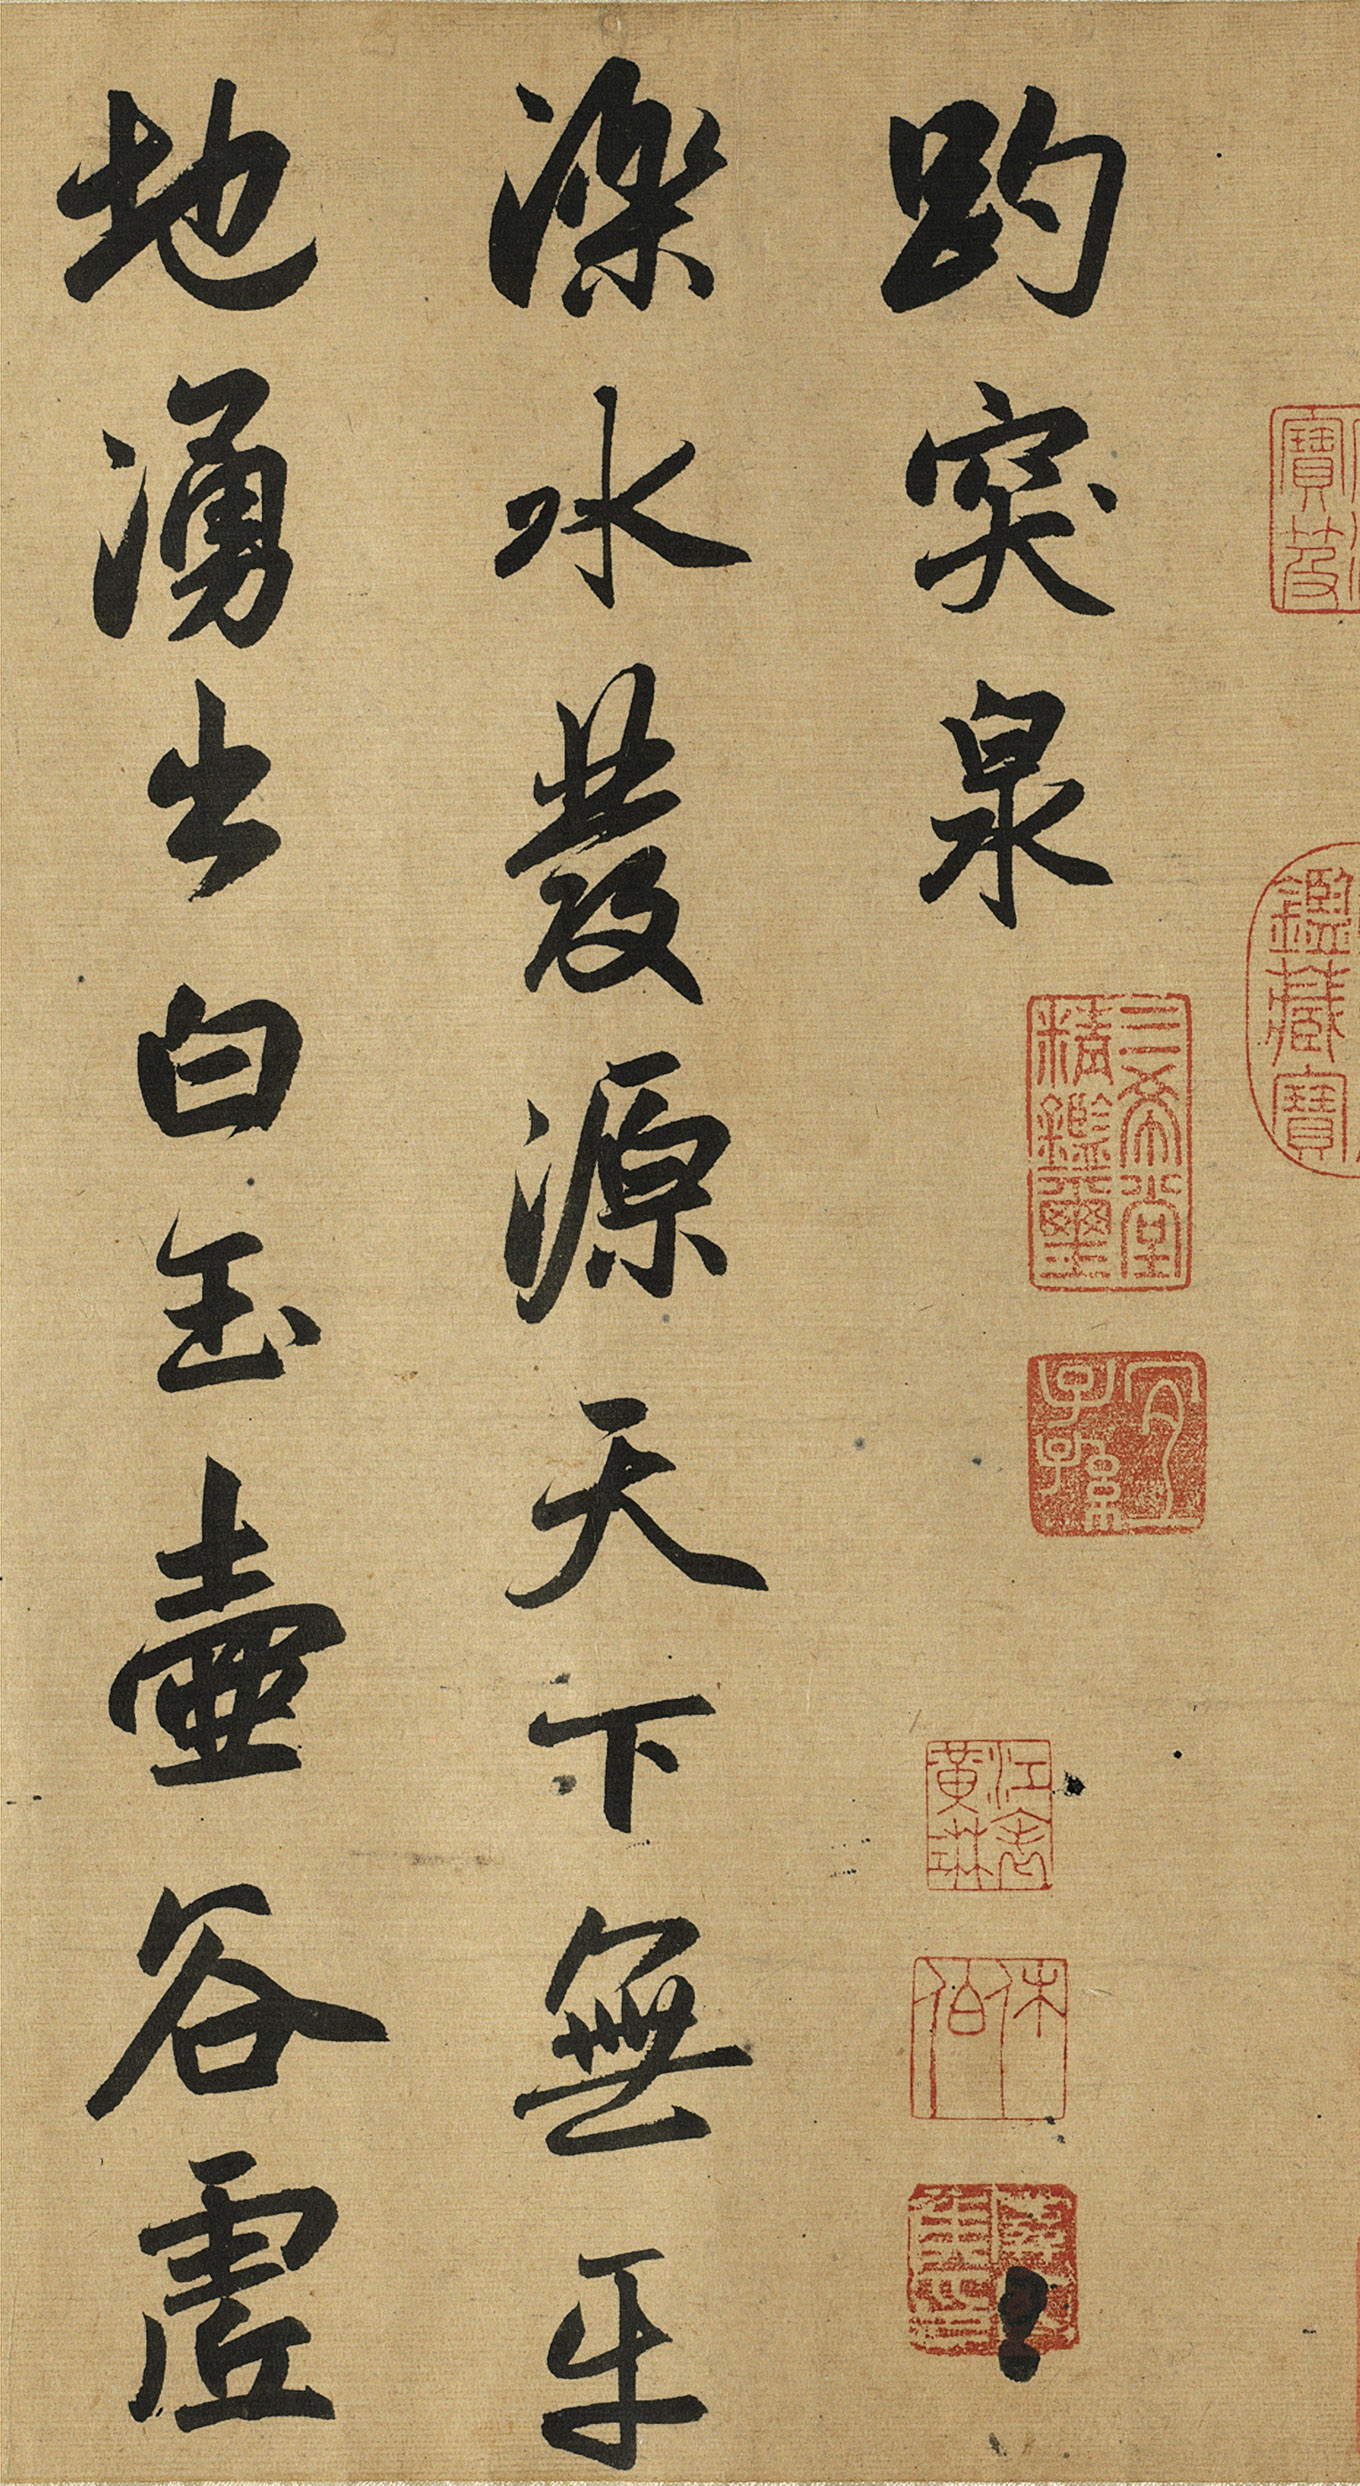 趵突泉
濼水發源天下無
平地湧出白玉壺谷虛
三希堂
精鑑璽
宜
子孫
鑑藏寶
寶笈
江表
黃琳
休伯